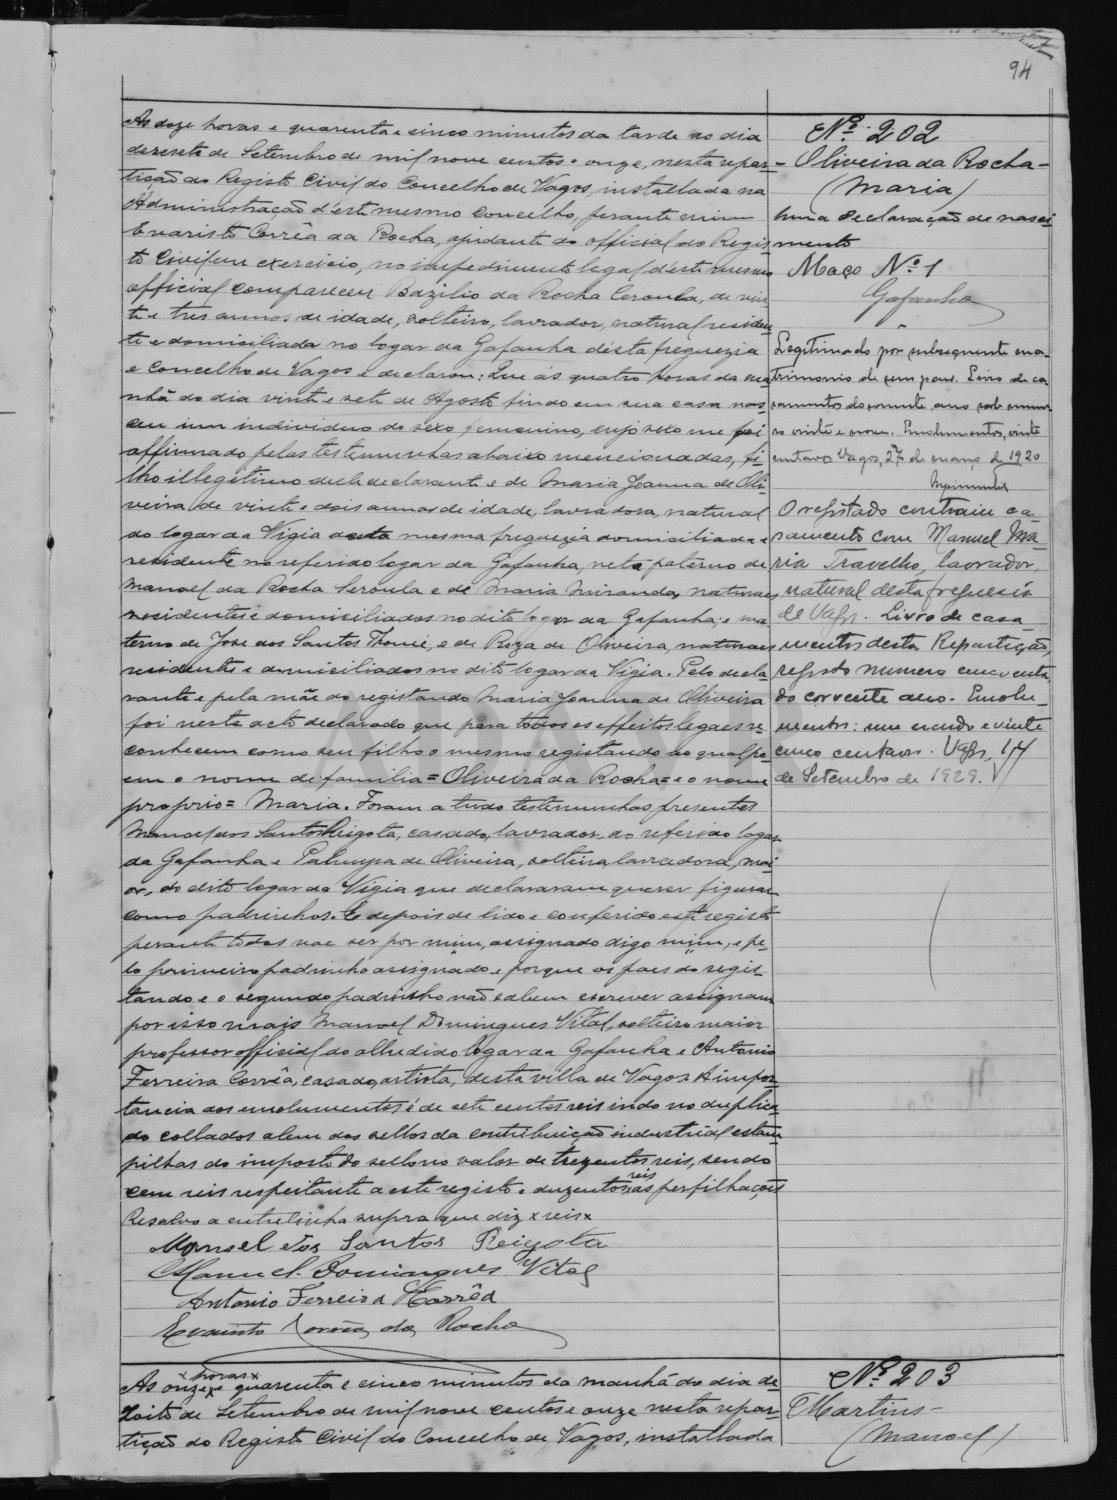 94
As doze horas e quarenta e cinco minutos da tarde no dia
dezesete de Setembro de mil nove centos e onze, nesta repar-
tição do Registo Civil do Concelho de Vagos, installada na
Administração d'este mesmo Concelho, perante mim
Evaristo Corrêa da Rocha, ajudante do official do Regis
to Civil em exercicio, no impedimento legal d'este mesmo
official compareceu Bazilio da Rocha Ceroula, de vin
te e tres annos de idade, solteiro, lavrador, natural residen
te e domiciliada no logar da Gafanha désta freguezia
e Concelho de Vagos e declarou: Que ás quatro horas da ma
nhã do dia vinte e sete de Agosto findo em sua casa nas
ceu um individuo do sexo femenino, cujo sexo me foi
affirmado pelas testemunhas abaixo mencionadas, fi-
lho illegitimo delle declarante e de Maria Joanna de Oli-
veira de vinte e dois annos de idade, lavradora, natural
do logar da Vigia desta mesma freguezia domiciliada e
residente no referido logar da Gafanha, neta paterno de
Manoel da Rocha Seroula e de Maria Miranda, naturaes
residentes e domiciliados no dito logar da Gafanha; e ma
terno de Jose dos Santos Thomé, e de Roza de Oliveira, naturaes
residentes e domiciliados no dito logar da Vigia. Pelo decla-
rante e pela mãe do registando Maria Joanna de Oliveira
foi neste acto declarado que para todos os effeitos legaes re-
conhecem como seu filho o mesmo registando ao qual po-
em o nome de familia = Oliveira da Rocha = e o nome
proprio = Maria. Foram a tudo testemunhas presentes
Manoel dos Santos Reigota, casado, lavrador, do referido logar
da Gafanha e Palmyra de Oliveira, solteira lavradora, mai-
or, do dito logar da Vigia que declararam querer figurar
como padrinhos. E depois de lido e conferido este registo
perante todos vae ser por mim, assignado digo mim, e pe-
lo primeiro padrinho assignado e porque os paes do regis-
tando e o segundo padrinho não sabem escrever assignam
por isso mais Manoel Domingues Vital, solteiro maior
professor official do alludido logar da Gafanha e Antonio
Ferreira Corrêa, casado, artista, desta villa de Vagos. A impor-
tancia dos emolumentos é de sete centos reis indo no duplica-
do collados alem dos sellos da contribuição industrial estam-
pilhas do imposto do sello no valor de trezentos reis, sendo
cem reis respeitante a este registo e duzentos reis ás perfilhações
Resalvo a entrelinha supra que diz x reis x
Manoel dos Santos Reigota
Manuel Domingues Vital
Antonio Ferreira Corrêa
Evaristo Corrêa da Rocha
Nº 202
- Oliveira da Rocha -
(Maria)
Uma declaração de nasci-
mento
Maço Nº 1
Gafanha
Legitimado por subsequente ma-
trimonio de seus paes. Livro de ca-
samentos do corrente ano sob nume-
ro vinte e nove. Emolumentos, vinte
centavos Vagos, 27 de março de 1920
O registado contraiu ca-
samento com Manuel Ma-
ria Travelho, lavrador,
natural desta freguesia
de Vagos. Livro de casa-
mentos desta Repartição,
registo numero cincoenta
do corrente ano. Emolu-
mentos: um escudo e vinte
cinco centavos. Vagos, 14
de Setembro de 1929.
As onze x horas x e quarenta e cinco minutos da manhã do dia de-
zoito de Setembro de mil nove centos e onze nesta repar-
tição do Registo Civil do Concelho de Vagos, installada
Nº 203
Martins -
(Manoel)